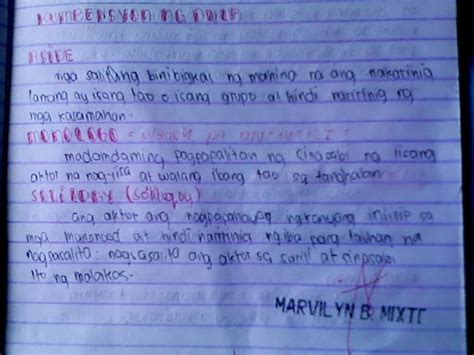 KUMBENSYON NG DULA
ASIDE
mga salitang binibigkas ng na ang nakarinig
lamang ay isang tao o isang grupo at hindi naririnig ng
mga kasamahan.
MONOLOGO =
madamdaming pagpapalitan ng sinasabi ng iisang
aktor na nag-iisa at walang ibang tao sa tanghalan
SOLILOQUY (soliloquy)
ang aktor ang nagpapahayag ng kanyang iniisip sa
mga manonood at hindi naririnig ng iba pang tauhan na
nagsasalita ang aktor sa sarili at sinasabi
ito ng malakas.
MARVILYN B. MIXTO